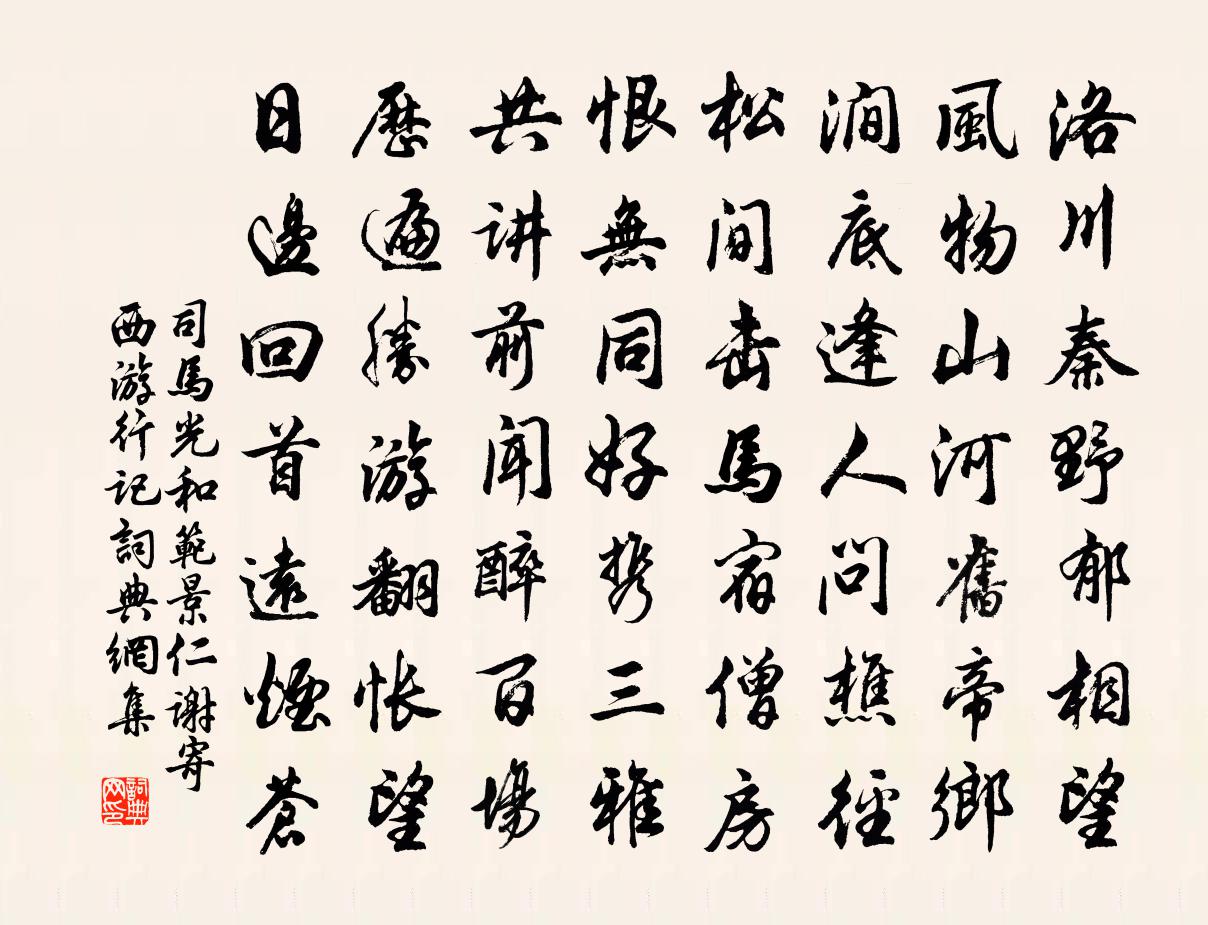 洛川秦野郁相望
風物山河舊帝鄉
澗底逢人問樵徑
松間击馬宿僧房
恨無同好携三雅
共讲前闻醉百場
歷遍勝游翻怅望
日邊回首遠煙蒼
司馬光和範景仁謝寄
西游行记詞典網集
詞典
网印